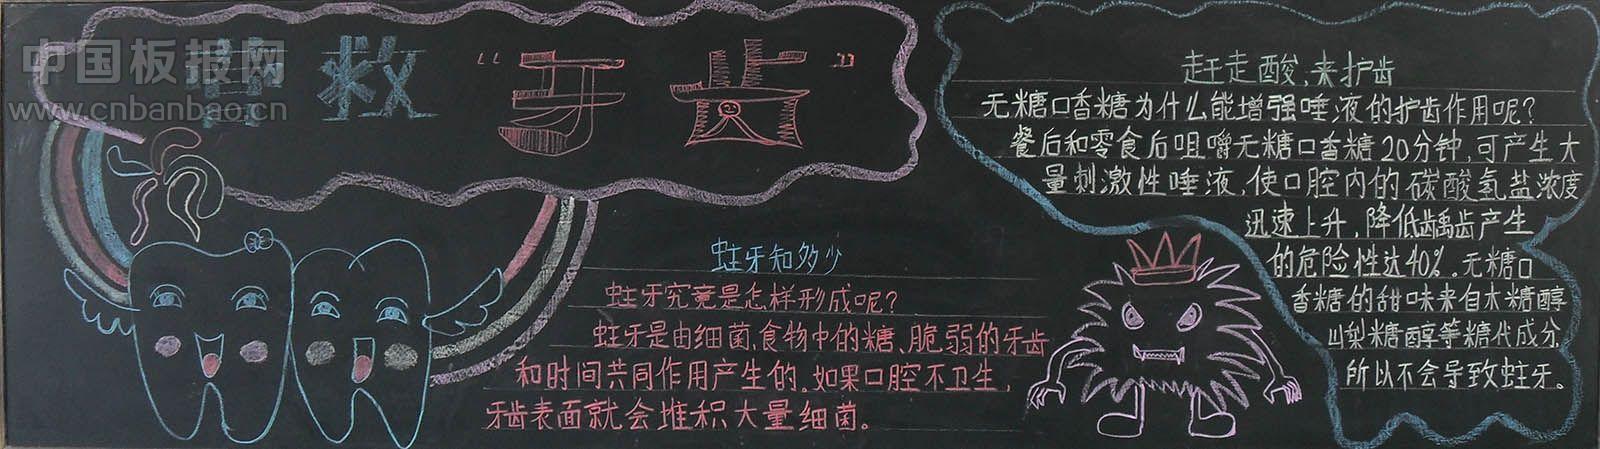 中国板报网
www.cnbanbao.cn
救“牙齿”
蛀牙知多少
蛀牙究竟是怎样形成呢?
蛀牙是由细菌,食物中的糖、脆弱的牙齿
和时间共同作用产生的.如果口腔不卫生,
牙齿表面就会堆积大量细菌。
赶走酸,来护齿
无糖口香糖为什么能增强唾液的护齿作用呢?
餐后和零食后咀嚼无糖口香糖20分钟,可产生大
量刺激性唾液,使口腔内的碳酸氢盐浓度
迅速上升,降低龋齿产生
的危险性达40%。无糖口
香糖的甜味来自木糖醇
山梨糖醇等糖代成分
所以不会导致蛀牙。